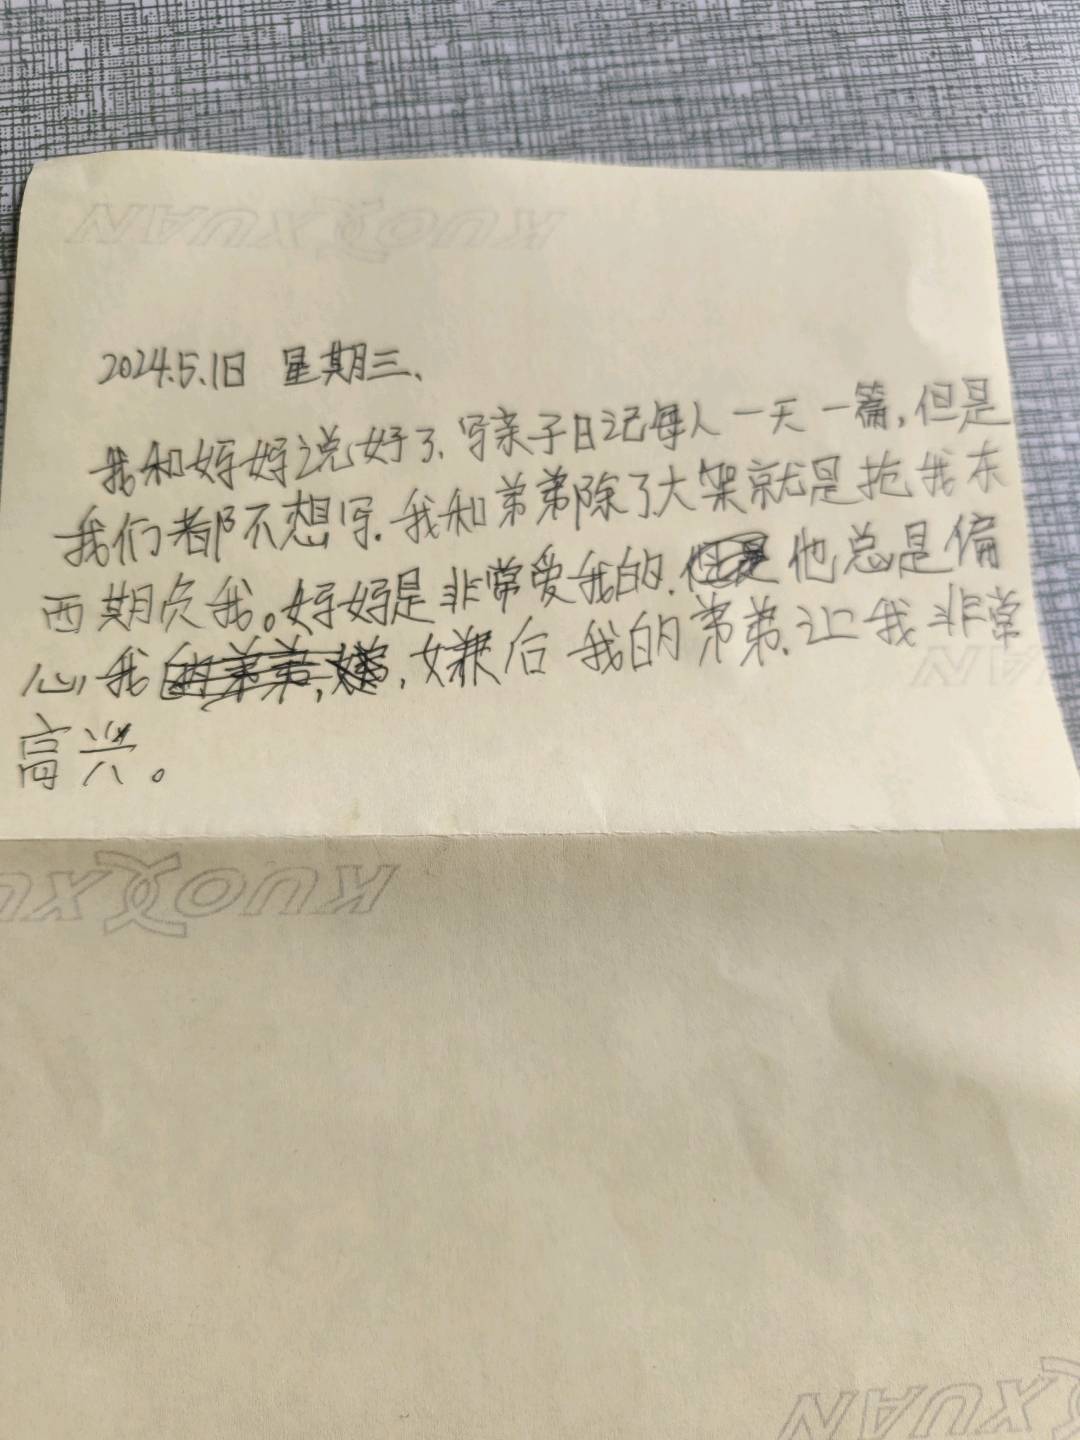 KUOXUAN
2024.5.1日 星期三.
我和妈妈说好了.写亲子日记每人一天一篇,但是
我们都不想写.我和弟弟除了大架就是抢我东
西期负我。妈妈是非常爱我的.但是他总是偏
心我的弟弟,嫌,嫌后我的弟弟.让我非常
高兴。
KUOXU
XUAN